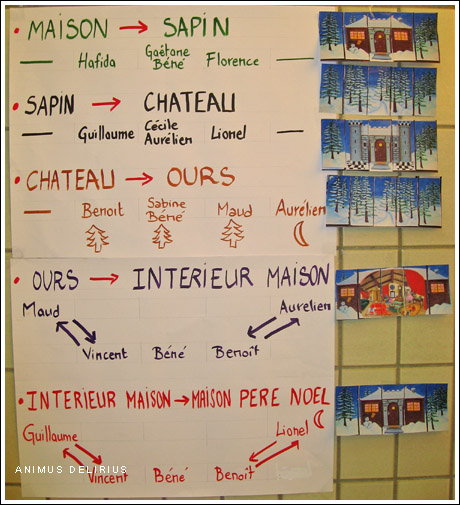 • MAISON → SAPIN
— Hafida Gaëtane Béné Florence —
• SAPIN → CHATEAU
— Guillaume Cécile Aurélien Lionel —
• CHATEAU → OURS
— Benoit Sabine Béné Maud Aurélien
• OURS → INTERIEUR MAISON
Maud Aurelien
Vincent Béné Benoît
• INTERIEUR MAISON → MAISON PERE NOEL
Guillaume Lionel
Vincent Béné Benoît
ANIMUS DELIRIUS